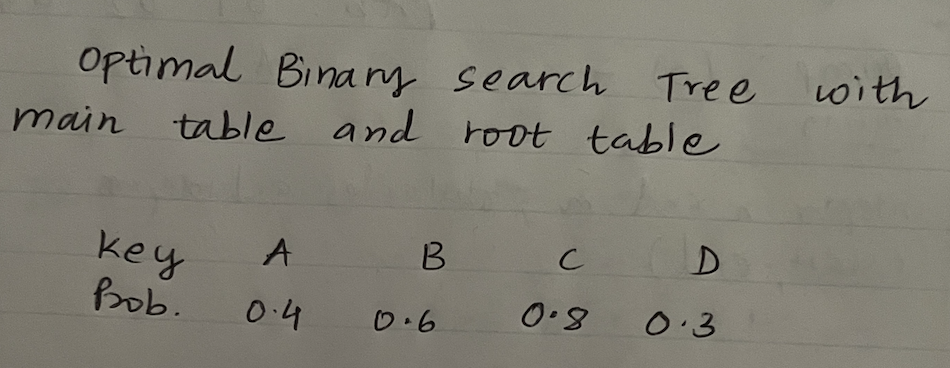 Optimal Binary search Tree with
main table and root table
Key A B C D
Prob. 0.4 0.6 0.8 0.3